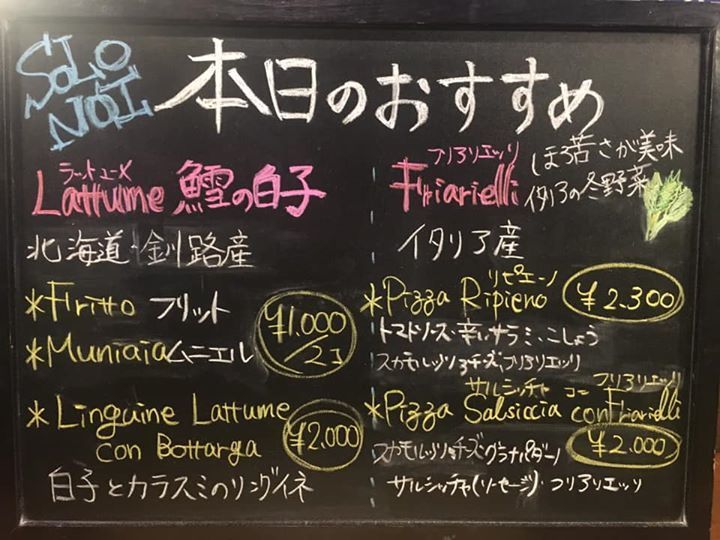 SOLO
NOI
本日のおすすめ
ラットゥーメ
Lattume 鱈の白子
北海道・釧路産
*Firitto フリット
*Muniaia ムニエル
¥1.000
/2コ
*Linguine Lattume
con Bottarga
¥2.000
白子とカラスミのリングイネ
フリアリエッリ
Friarielli
ほろ苦さが美味
イタリアの冬野菜
イタリア産
リピエーノ
*Pizza Ripieno
¥2.300
トマトソース、辛いサラミ、こしょう
スカモルッツァチーズ、フリアリエッリ
サルシッチャ コン フリアリエッリ
*Pizza Salsiccia con Friarielli
¥2.000
スカモルッツァチーズ グラナパダーノ
サルシッチャ(ソーセージ) フリアリエッリ